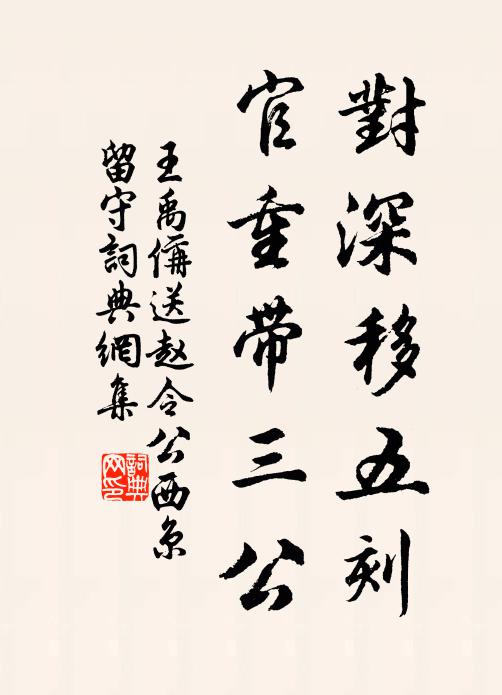 對深移五刻
官重帶三公
王禹偁送赵令公西京
留守詞典網集
詞典
网印